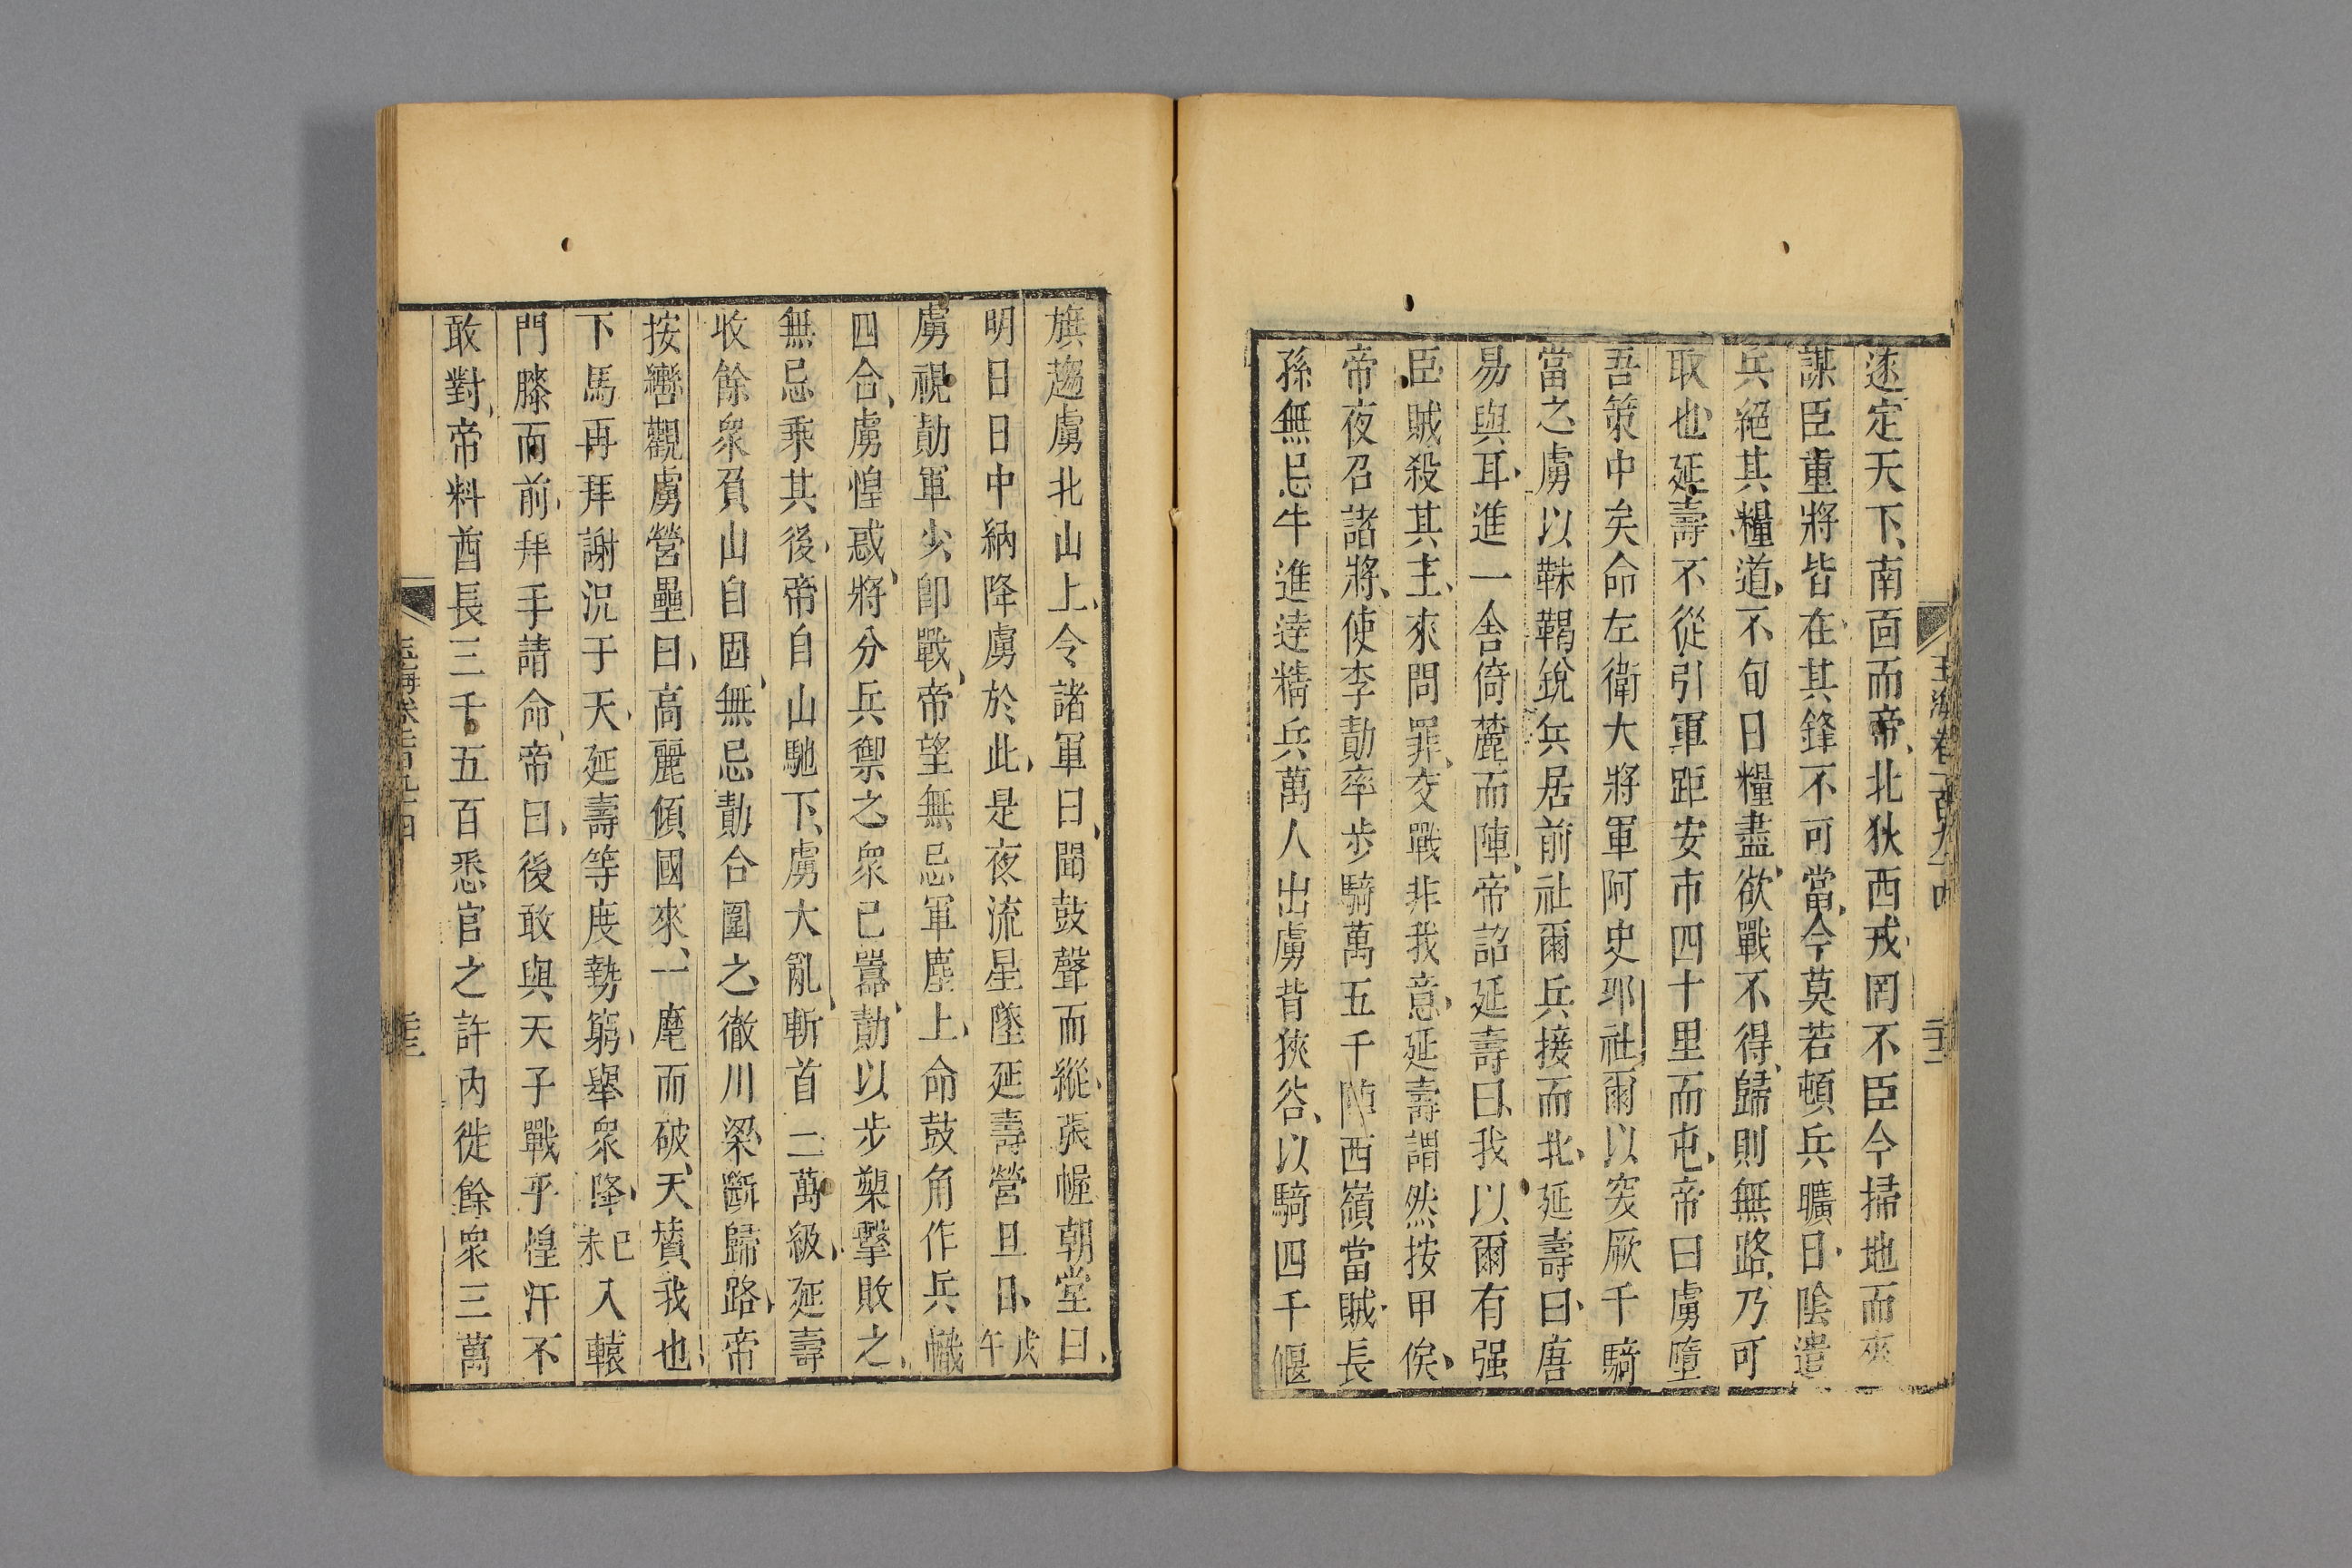 玉海卷一百九十四
二十二
遂定天下、南面而帝、北狄西戎罔不臣今掃地而來
謀臣重將皆在其鋒不可當、今莫若頓兵曠日、陰遣
兵絕其糧道、不旬日糧盡、欲戰不得、歸則無路、乃可
取也、延壽不從引軍距安市四十里而屯、帝曰虜墮
吾策中矣命左衛大將軍阿史那社爾以突厥千騎
當之虜以靺鞨銳兵居前社爾兵接而北、延壽曰、唐
易與耳、進一舍倚麓而陣、帝詔延壽曰、我以爾有强
臣賊殺其主、來問罪、交戰非我意、延壽謂然按甲俟、
帝夜召諸將、使李勣率步騎萬五千陣西嶺當賊、長
孫無忌牛進達精兵萬人出虜背狹谷、以騎四千偃
旗趨虜北山上、令諸軍曰、聞鼓聲而縱、張幄朝堂曰、
明日日中納降虜於此、是夜流星墜延壽營旦日、戊午
虜視勣軍少卽戰、帝望無忌軍塵上、命鼓角作兵幟
四合、虜惶惑、將分兵禦之衆已囂、勣以步槊擊敗之、
無忌乘其後、帝自山馳下、虜大亂、斬首二萬級、延壽
收餘衆負山自固、無忌勣合圍之、徹川梁、斷歸路、帝
按轡觀虜營壘曰、高麗傾國來、一麾而破、天贊我也、
下馬再拜謝況于天、延壽等度勢窮、舉衆降、己未入轅
門膝而前、拜手請命、帝曰、後敢與天子戰乎惶汗不
敢對、帝料酋長三千五百悉官之許內徙餘衆三萬
玉海卷一百九十四